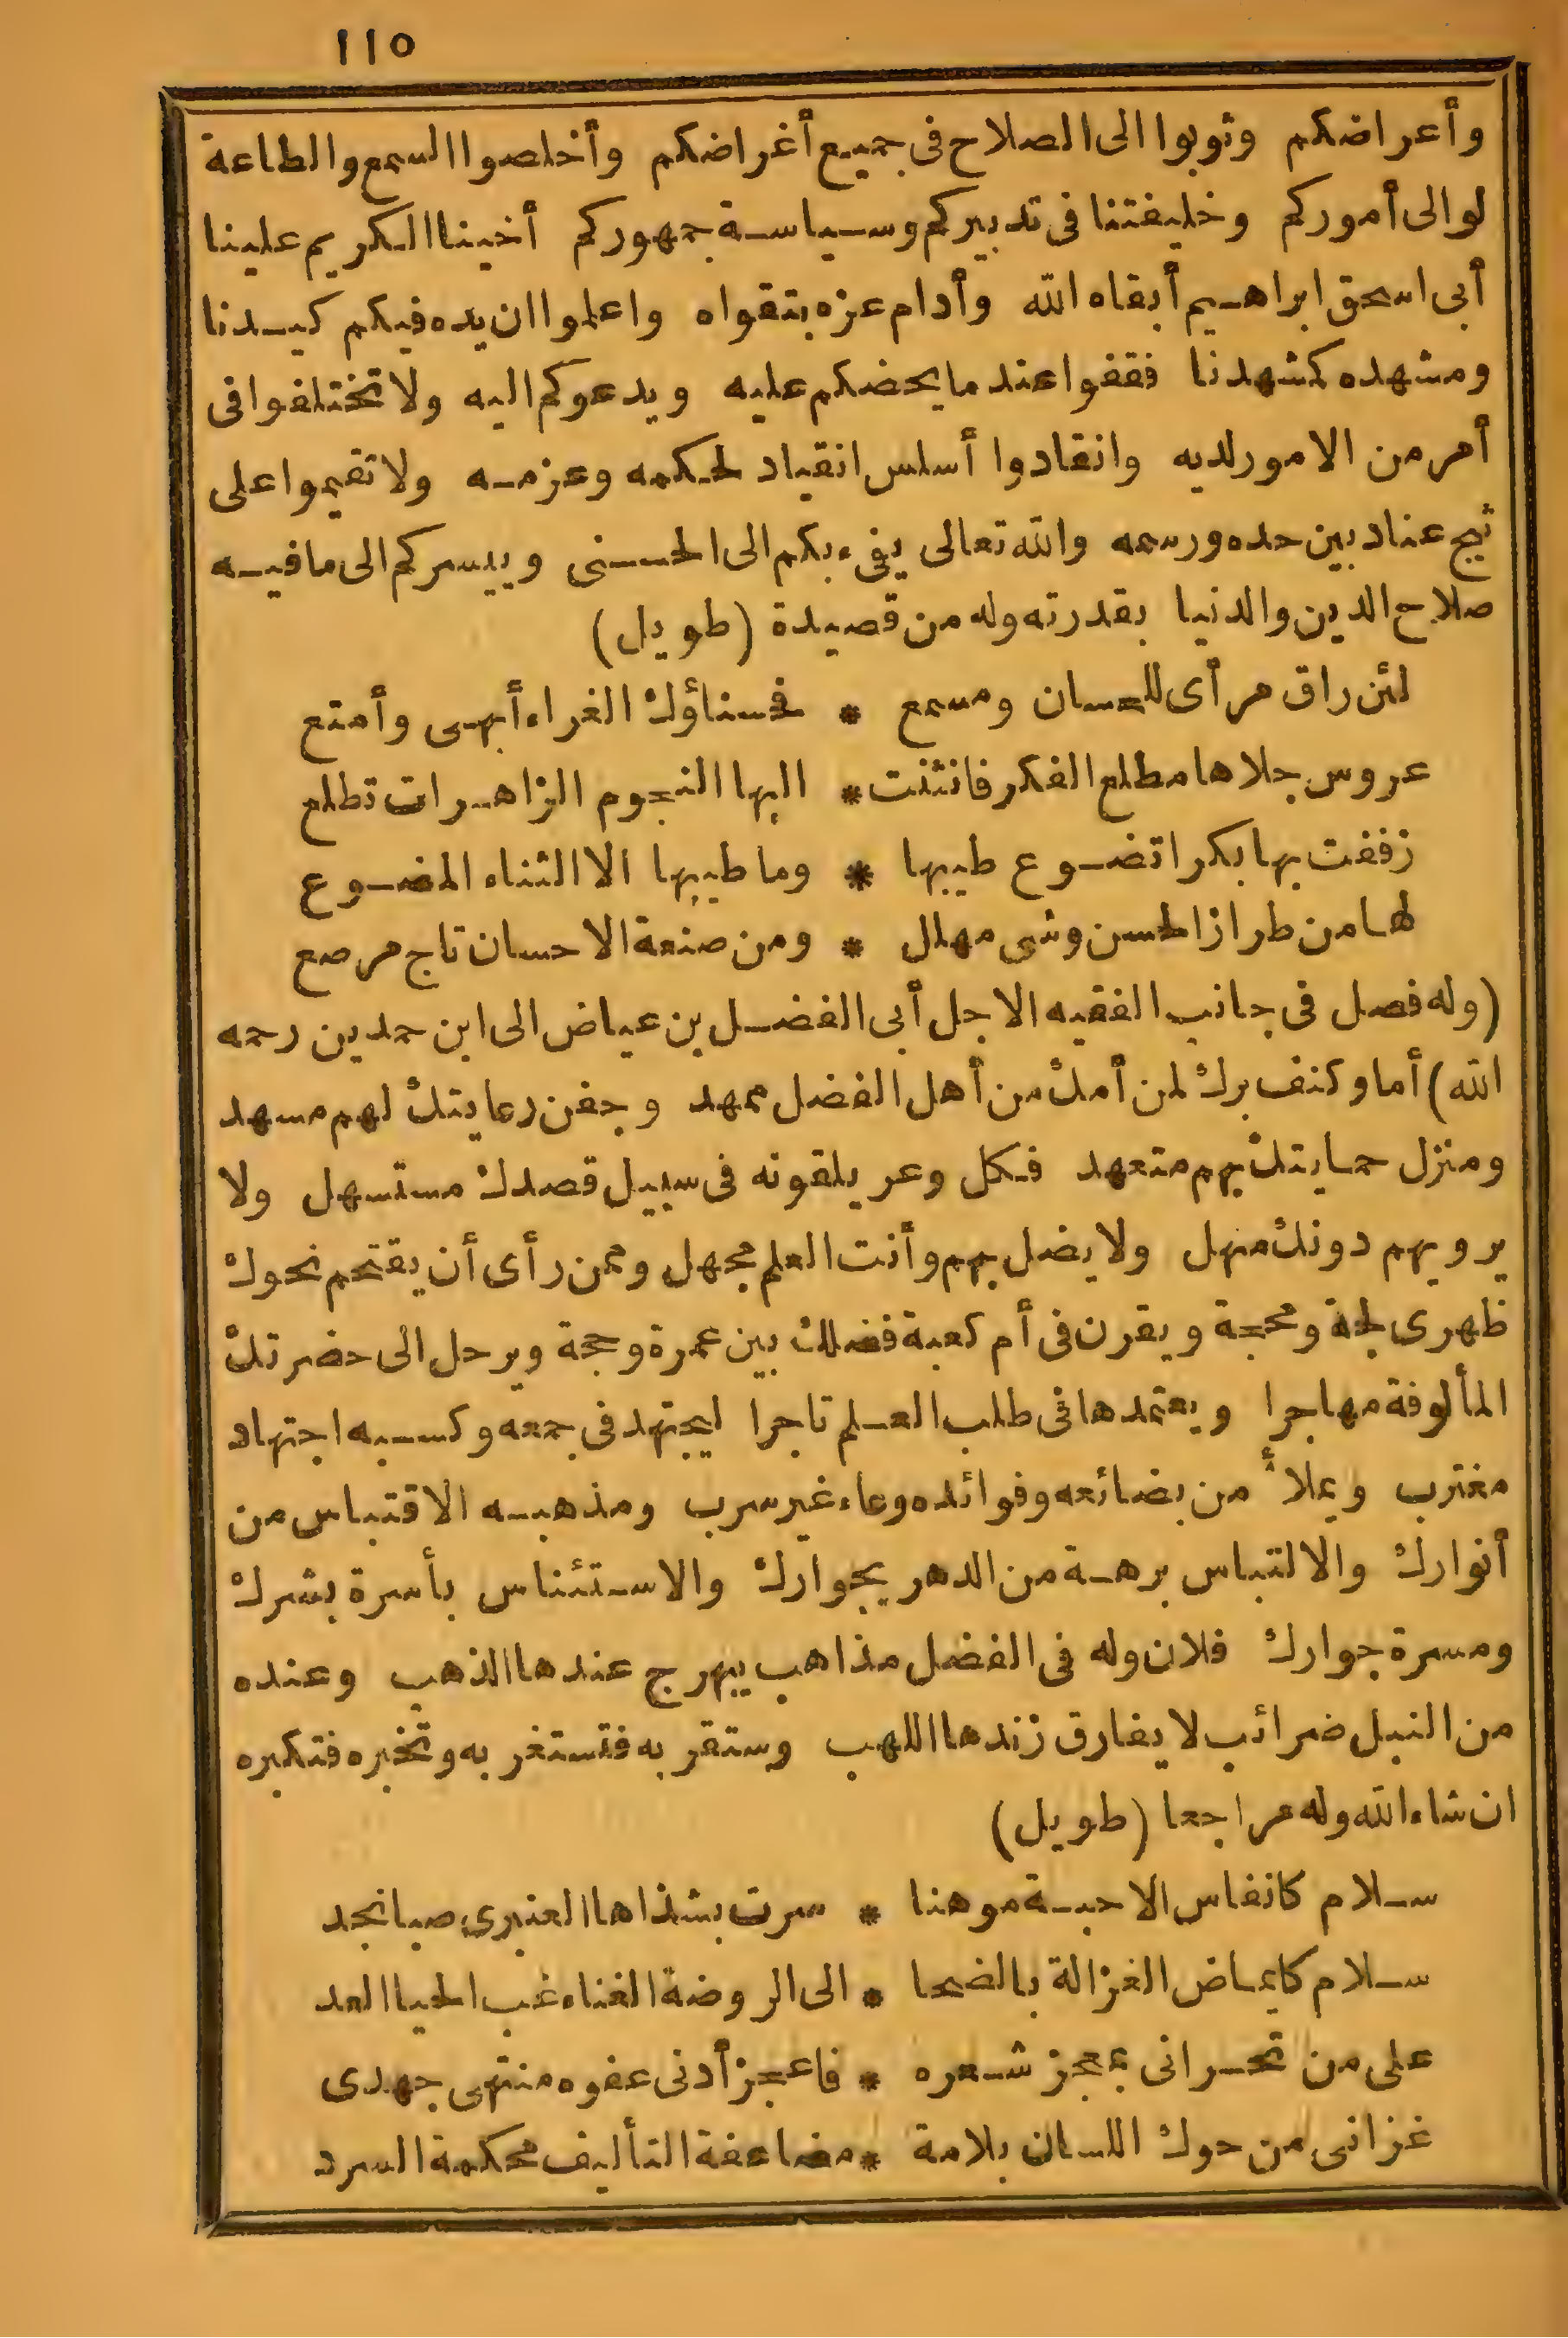 ١١٥
وأعراضكم وثوبوا الى الصلاح فى جميع أغراضكم وأخلصوا السمع والطاعة
لوالى أموركم وخليفتنا فى تدبيركم وسياسة جمهوركم أخينا الكريم علينا
أبى اسحق ابراهيم أبقاه الله وأدام عزه بتقواه واعلموا ان يده فيكم كيدنا
ومشهده كمشهدنا فقفوا عند ما يحضكم عليه ويدعوكم اليه ولا تختلفوا فى
أمر من الامور لديه وانقادوا أسلس انقياد لحكمه وعزمه ولا تقيموا على
ثبج عناد بين حده ورسمه والله تعالى يفىء بكم الى الحسنى وييسركم الى ما فيه
صلاح الدين والدنيا بقدرته وله من قصيدة (طويل)
لئن راق مرأى للحسان ومسمع * فحسناؤك الغراء أبهى وأمتع
عروس جلاها مطلع الفكر فانثنت * اليها النجوم الزاهرات تطلع
زففت بها بكرا تضوع طيبها * وما طيبها الا الثناء المضوع
لها من طراز الحسن وشى مهلل * ومن صنعة الاحسان تاج مرصع
(وله فصل فى جانب الفقيه الاجل أبى الفضل بن عياض الى ابن حمدين رحمه
الله) أما وكنف برك لمن أمك من أهل الفضل ممهد وجفن رعايتك لهم مسهد
ومنزل حمايتك بهم متعهد فكل وعر يلقونه فى سبيل قصدك مستسهل ولا
يرويهم دونك منهل ولا يضل بهم وأنت العلم مجهل وممن رأى أن يقتحم نحوك
ظهرى لجة ومحجة ويقرن فى أم كعبة فضلك بين عمرة وحجة ويرحل الى حضرتك
المألوفة مهاجرا ويعتمدها فى طلب العلم تاجرا ليجتهد فى جمعه وكسبه اجتهاد
مغترب ويملأ من بضائعه وفوائده وعاء غير سرب ومذهبه الاقتباس من
أنوارك والالتباس برهة من الدهر بجوارك والاستئناس بأسرة بشرك
ومسرة جوارك فلان وله فى الفضل مذاهب يبهرج عندها الذهب وعنده
من النبل ضرائب لا يفارق زندها اللهب وستقر به فتستغر به وتخبره فتكبره
ان شاء الله وله مراجعا (طويل)
سلام كانفاس الاحبة موهنا * سرت بشذاها العنبرى صبا نجد
سلام كايماض الغزالة بالضحا * الى الروضة الغناء غب الحيا العد
على من تحرانى بمعجز شعره * فاعجز أدنى عفوه منتهى جهدى
غزانى من حوك اللسان بلامة * مضاعفة التأليف محكمة السرد